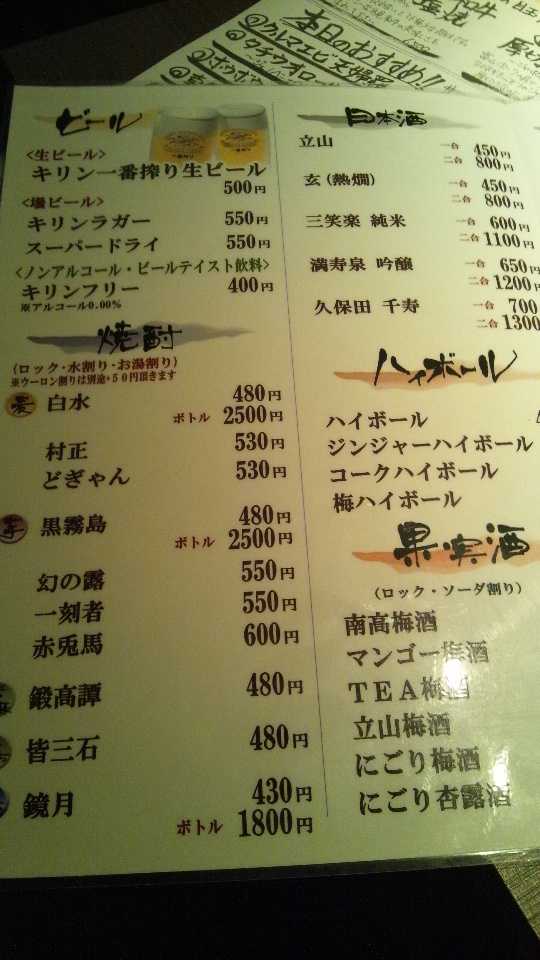 本日のおすすめ!!
クルマエビ
タチウオ
塩焼
ビール
<生ビール>
キリン一番搾り生ビール
500円
<壜ビール>
キリンラガー 550円
スーパードライ 550円
<ノンアルコール・ビールテイスト飲料>
キリンフリー 400円
※アルコール0.00%
焼酎
(ロック・水割り・お湯割り)
※ウーロン割りは別途+50円頂きます
麦 白水 480円
ボトル 2500円
村正 530円
どぎゃん 530円
芋 黒霧島 480円
ボトル 2500円
幻の露 550円
一刻者 550円
赤兎馬 600円
鍛高譚 480円
皆三石 480円
鏡月 430円
ボトル 1800円
日本酒
立山 一合 450円
二合 800円
玄(熱燗) 一合 450円
二合 800円
三笑楽 純米 一合 600円
二合 1100円
満寿泉 吟醸 一合 650円
二合 1200円
久保田 千寿 一合 700
二合 1300
ハイボール
ハイボール
ジンジャーハイボール
コークハイボール
梅ハイボール
果実酒
(ロック・ソーダ割り)
南高梅酒
マンゴー梅酒
TEA梅酒
立山梅酒
にごり梅酒
にごり杏露酒